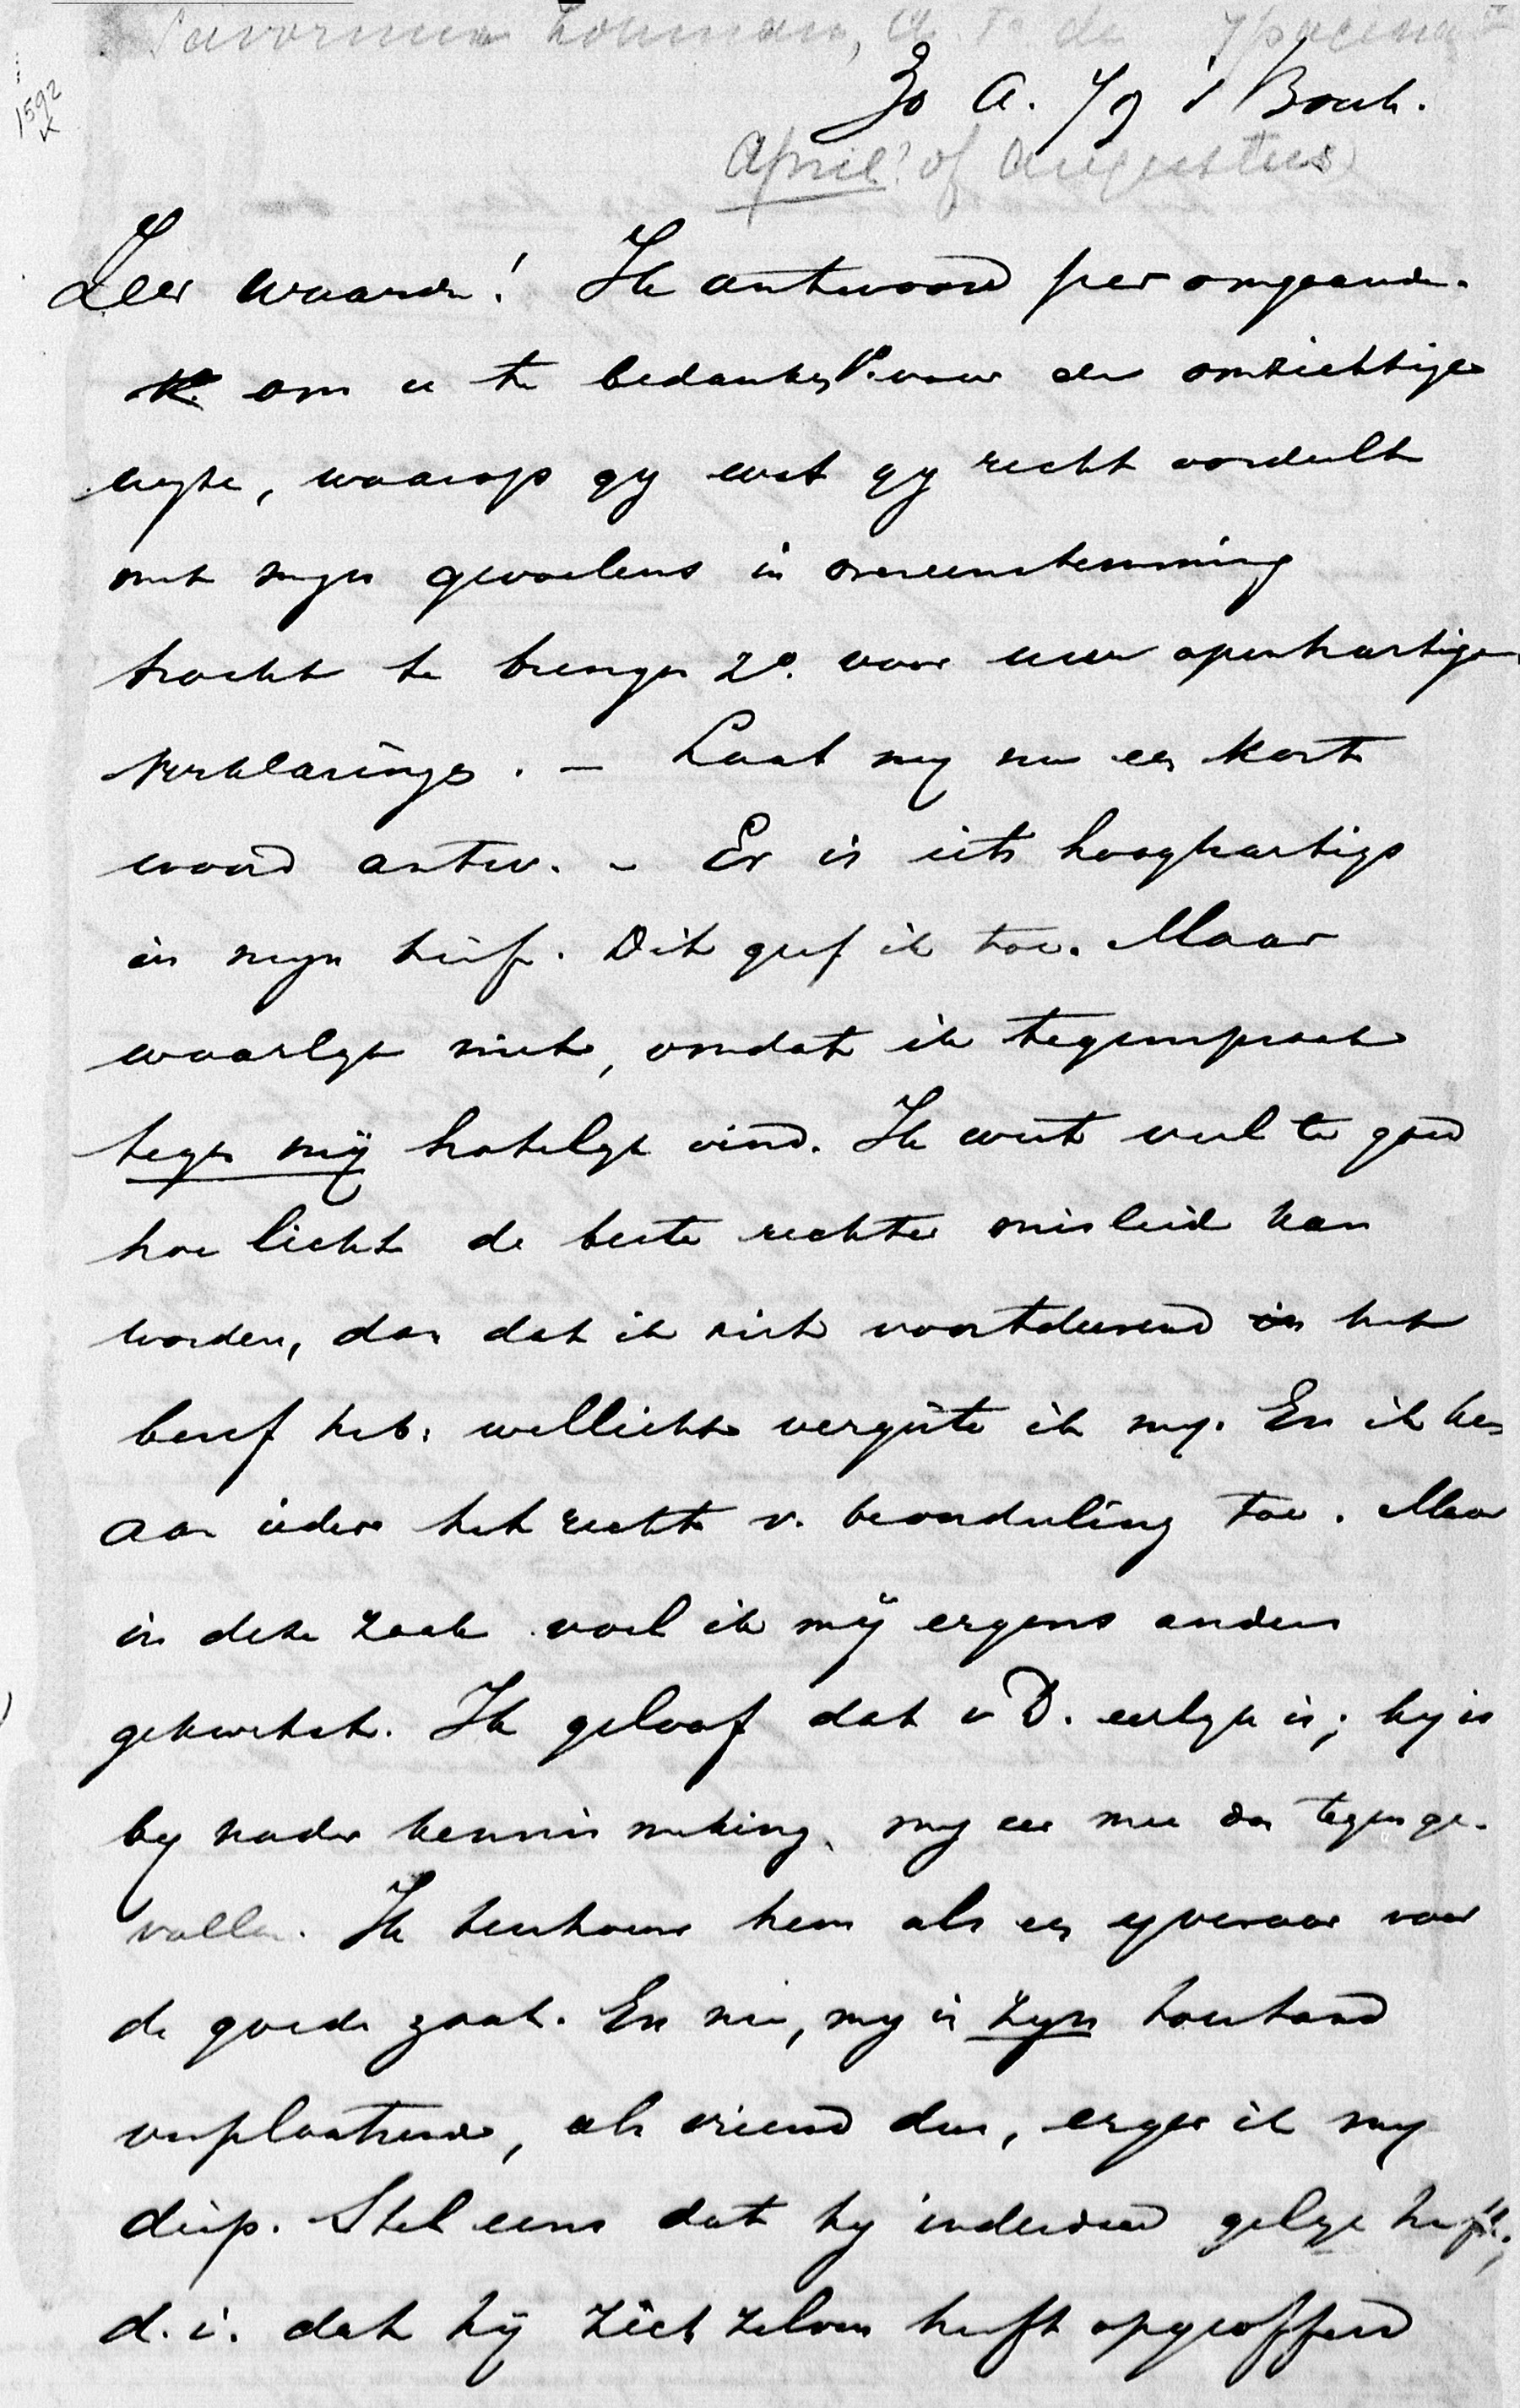 Savornin Lohman, A. F. de
1592
30 A. 79 's Bosch.
April? of Augustus
Zeer waarde! Ik antwoord per omgaande.
om u te bedanken 1o. voor de omzichtige
wyze, waarop gy wat gy recht oordeelt
met myn gevoelens in overeenstemming
tracht te brengen 2o. voor uwe openhartige
verklaringen. – Laat my nu een kort
woord antw. – Er is iets hooghartigs
in myn brief. Dit geef ik toe. Maar
waarlyk niet, omdat ik tegenspraak
tegen mij hatelyk vind. Ik weet veel te goed
hoe licht de beste rechter misleid kan
worden, dan dat ik niet voortdurend het
besef heb: wellicht vergiste ik my. En ik ken
aan ieder het recht v. beoordeeling toe. Maar
in deze zaak voel ik mij ergens anders
gekwetst. Ik geloof dat v D. eerlyk is; hy is
by nader kennismaking, my eer mee dan tegenge-
vallen. Ik beschouw hem als een yveraar voor
de goede zaak. En nu, my in zyn toestand
verplaatsende, als vriend dus, erger ik my
diep. Stel eens dat hy inderdaad gelyk heeft;
d.i. dat hij zich zelven heeft opgeofferd